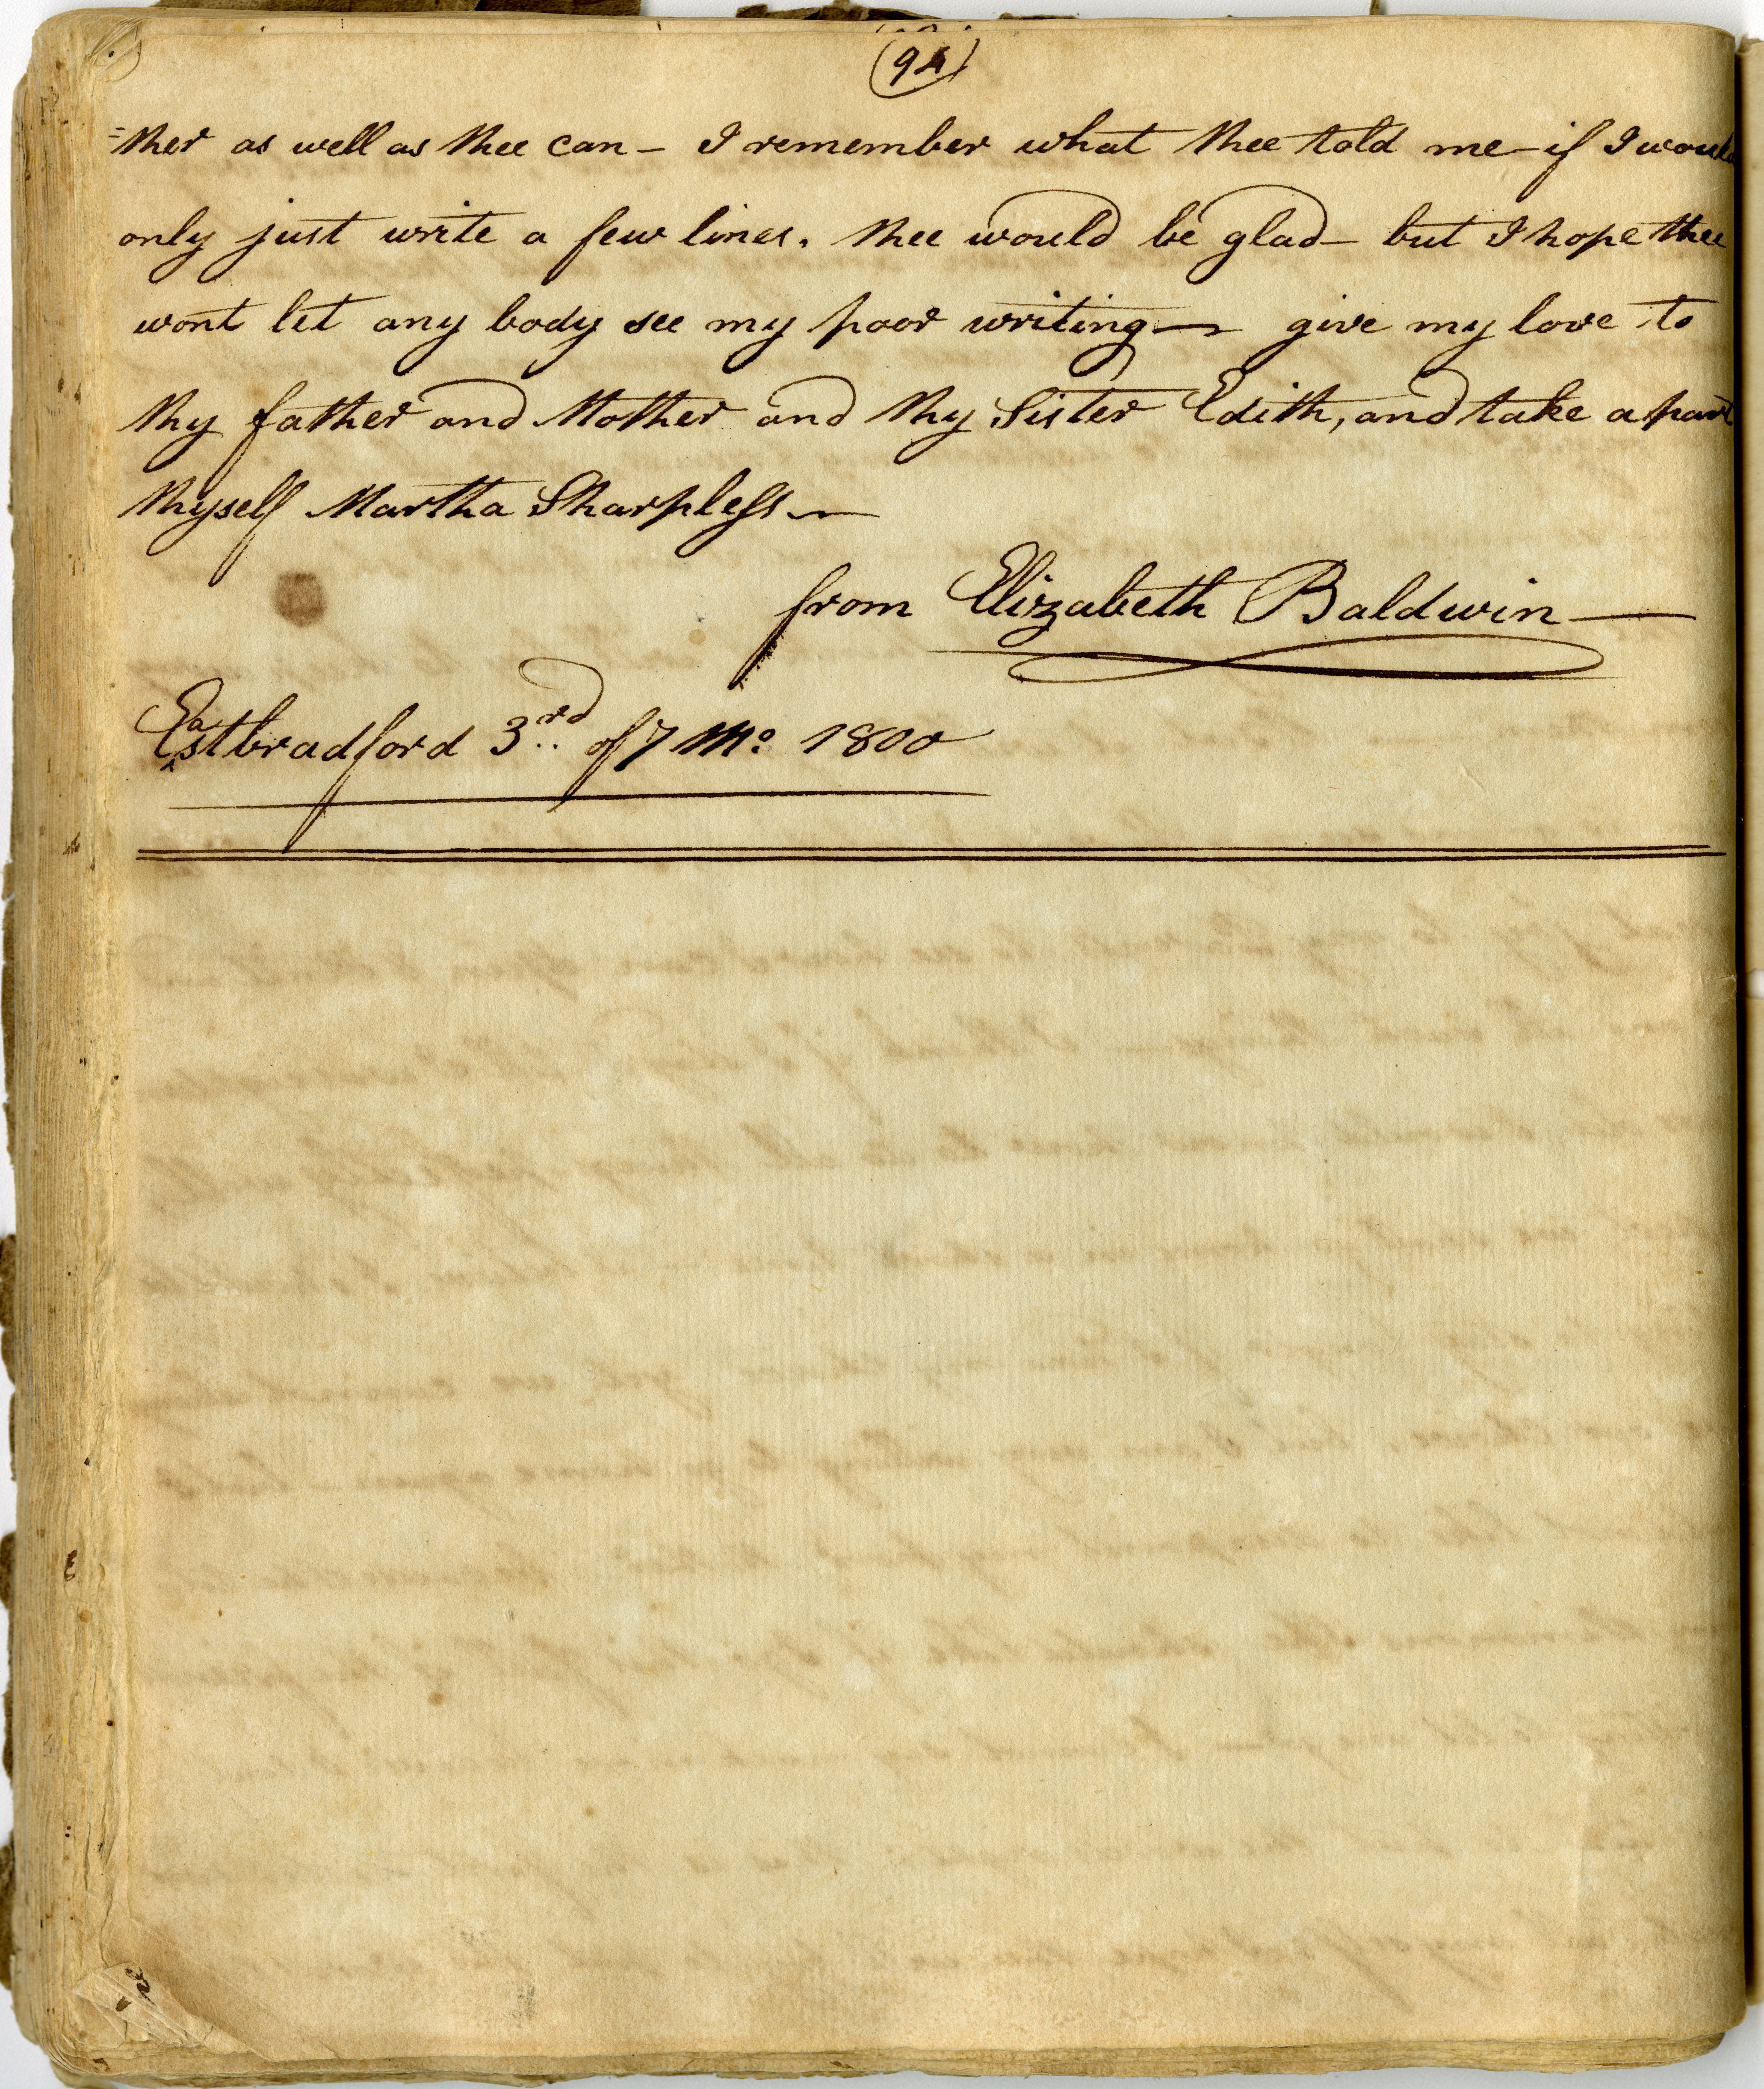 (94)
=ther as well as thee can – I remember what thee told me – if I would
only just write a few lines. thee would be glad – but I hope thee
wont let any body see my poor writing — give my love to
thy father and Mother and thy Sister Edith, and take a part
thyself Martha Sharpless —
from Elizabeth Baldwin —
Eastbradford 3rd of 7 Mo 1800